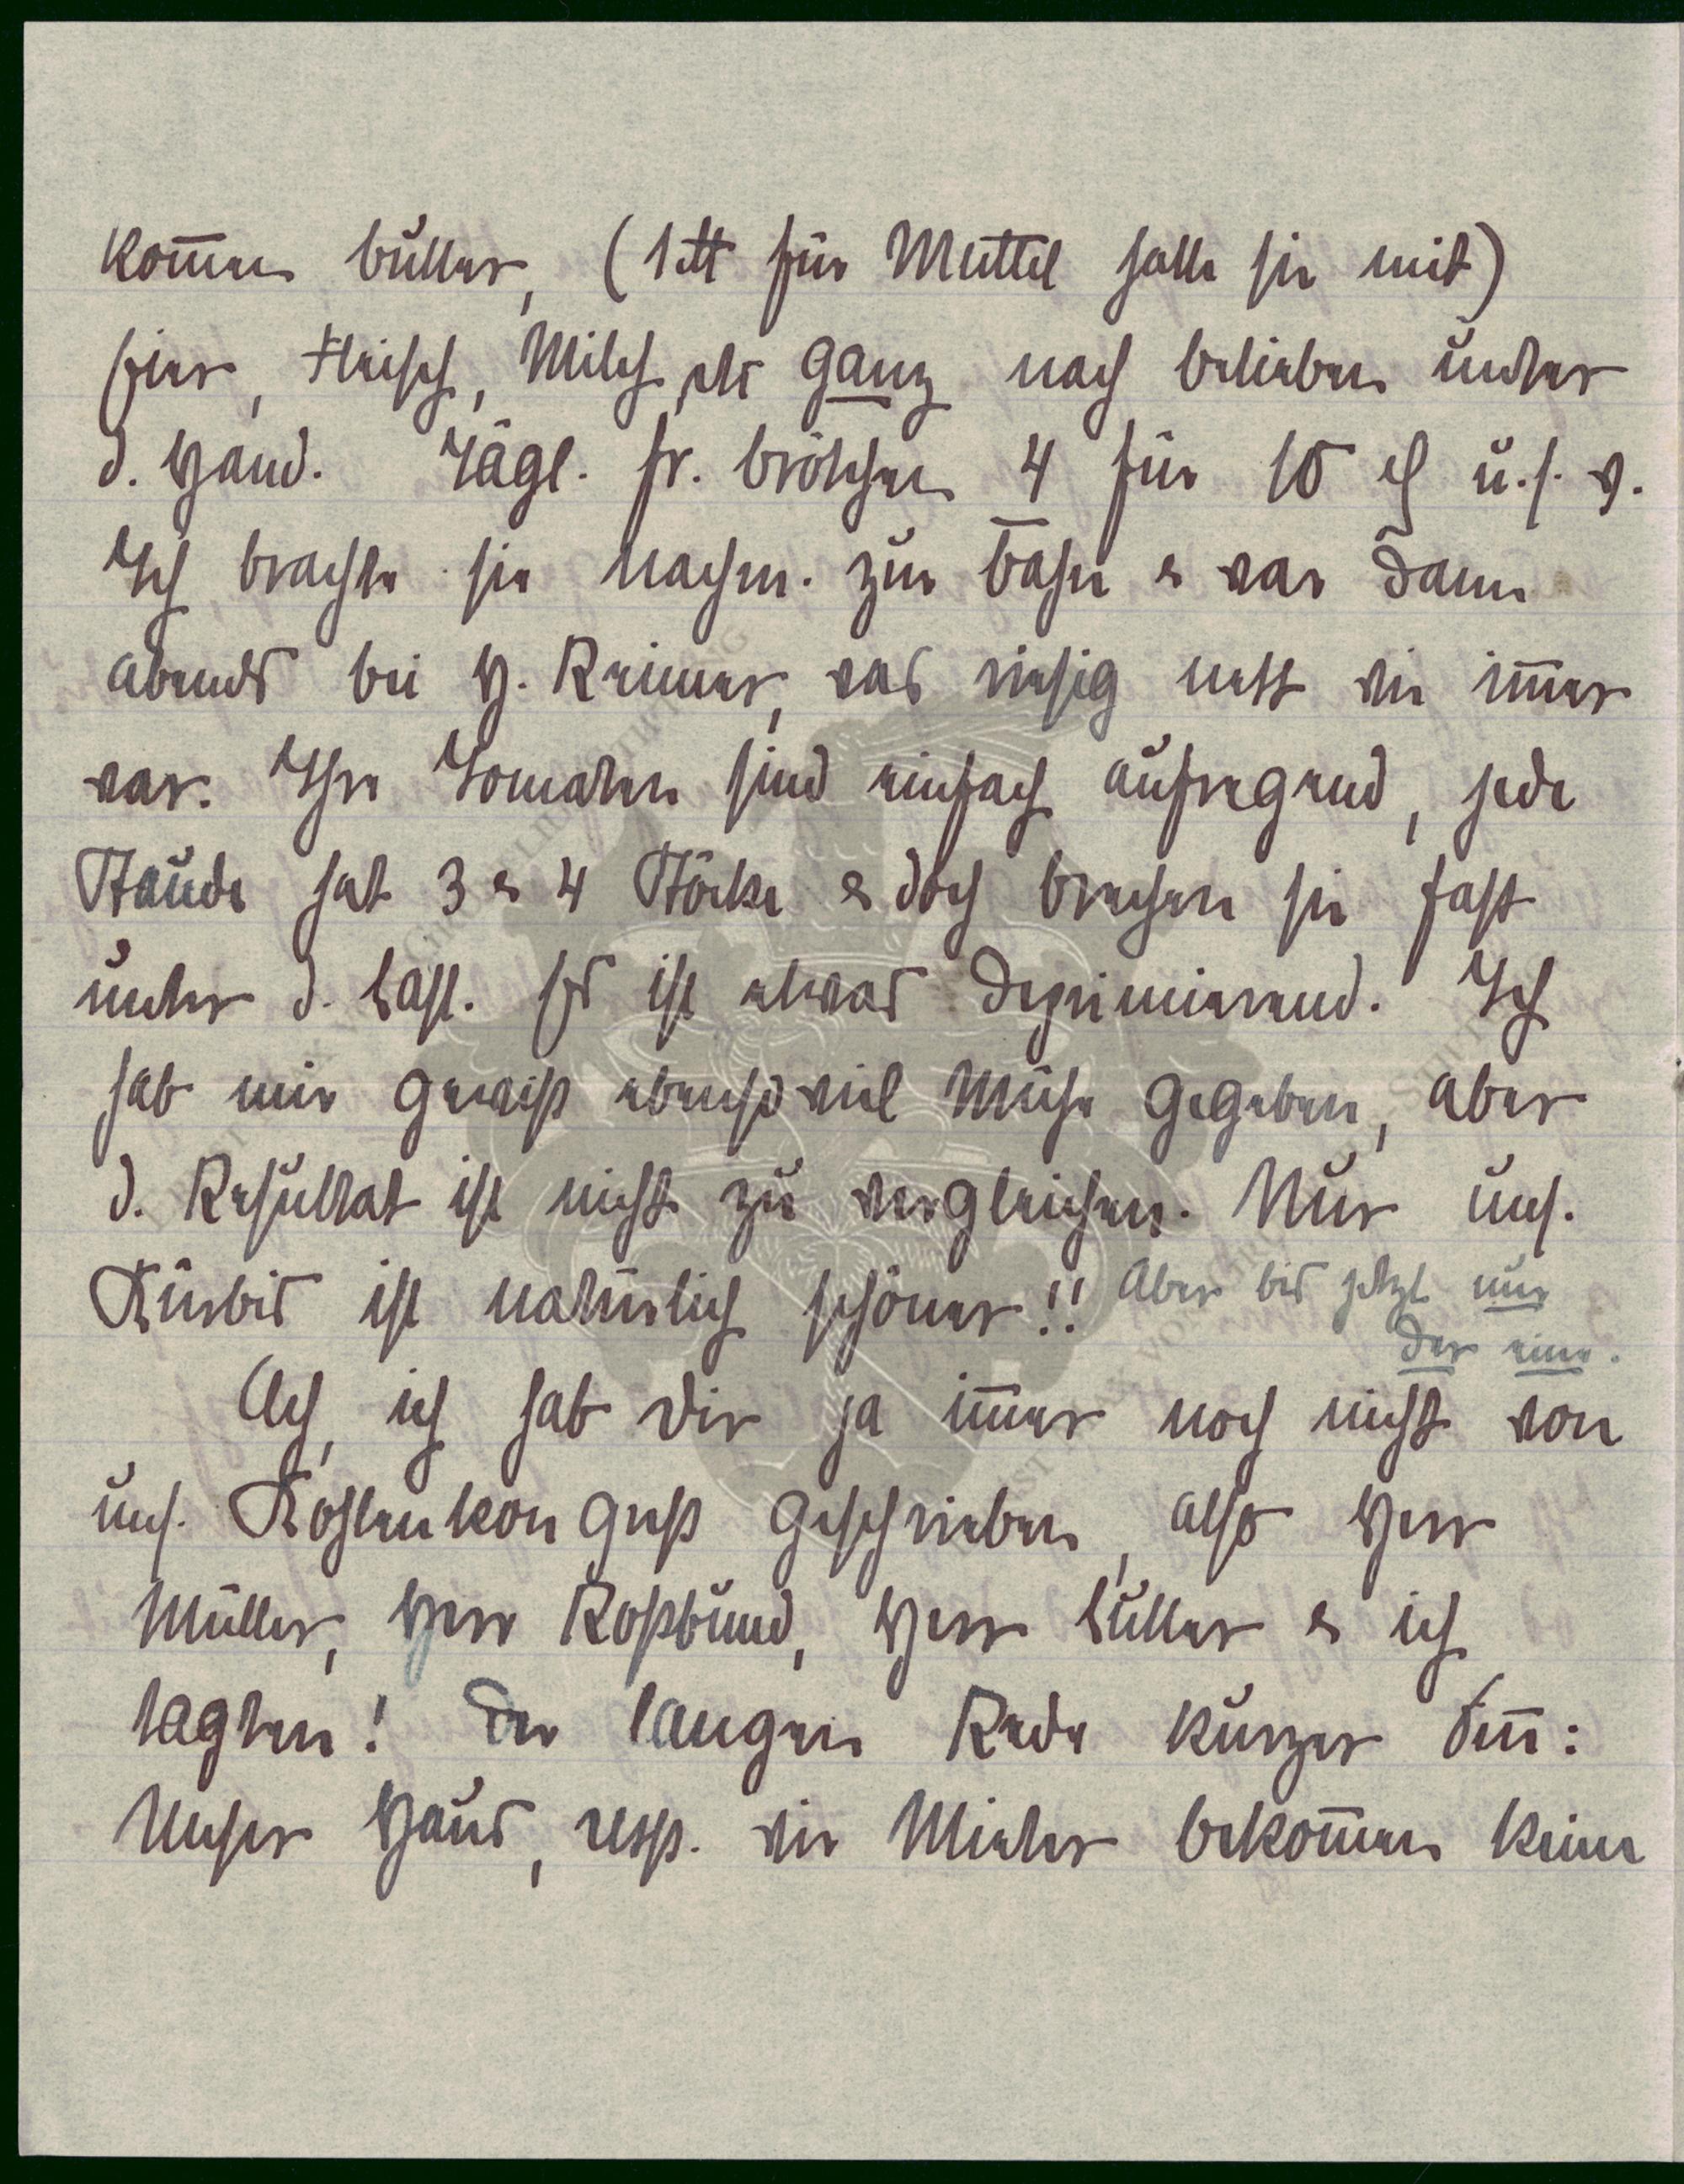 kom̅en Butter, (1 ℔ für Muttel hatte sie mit)
Eier, Fleisch, Milch etc ganz nach belieben unter
d. Hand. Tägl. fr. Brötchen 4 für 10 ₰ u.s.w.
Ich brachte sie nachm. zur Bahn & war dann
abends bei H. Reimer, was riesig nett wie im̅er
war. Ihre Tomaten sind einfach aufregend, jede
Staude hat 3 & 4 Stöcke & doch brechen sie fast
unter d. Last. Es ist etwas deprimierend. Ich
hab mir gewiss ebenso viel Mühe gegeben, aber
d. Resultat ist nicht zu vergleichen. Nur uns.
Kürbis ist natürlich schöner!! Aber bis jetzt nur
der eine.
Ach, ich hab Dir ja im̅er noch nicht von
uns. Kohlenkongreß geschrieben, also Herr
Müller, Herr Roßbund, Herr Luller & ich
tagten! Der langen Rede kurzer Sin̅:
Unser Haus, resp. wir Mieter bekom̅en keine